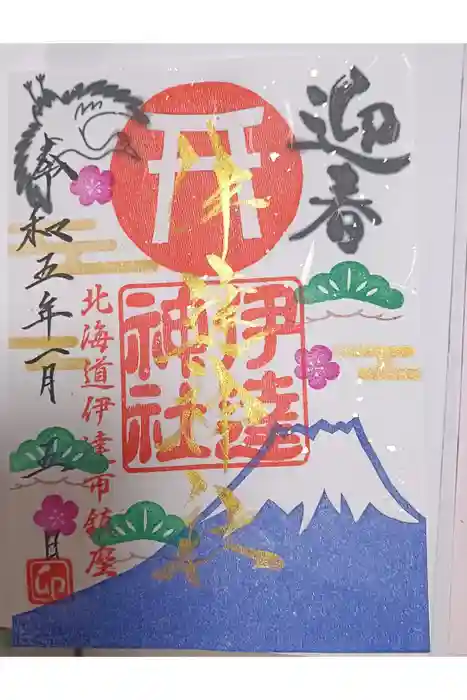 迎春
伊達
神社
北海道伊達市鎮座
令和五年一月五日